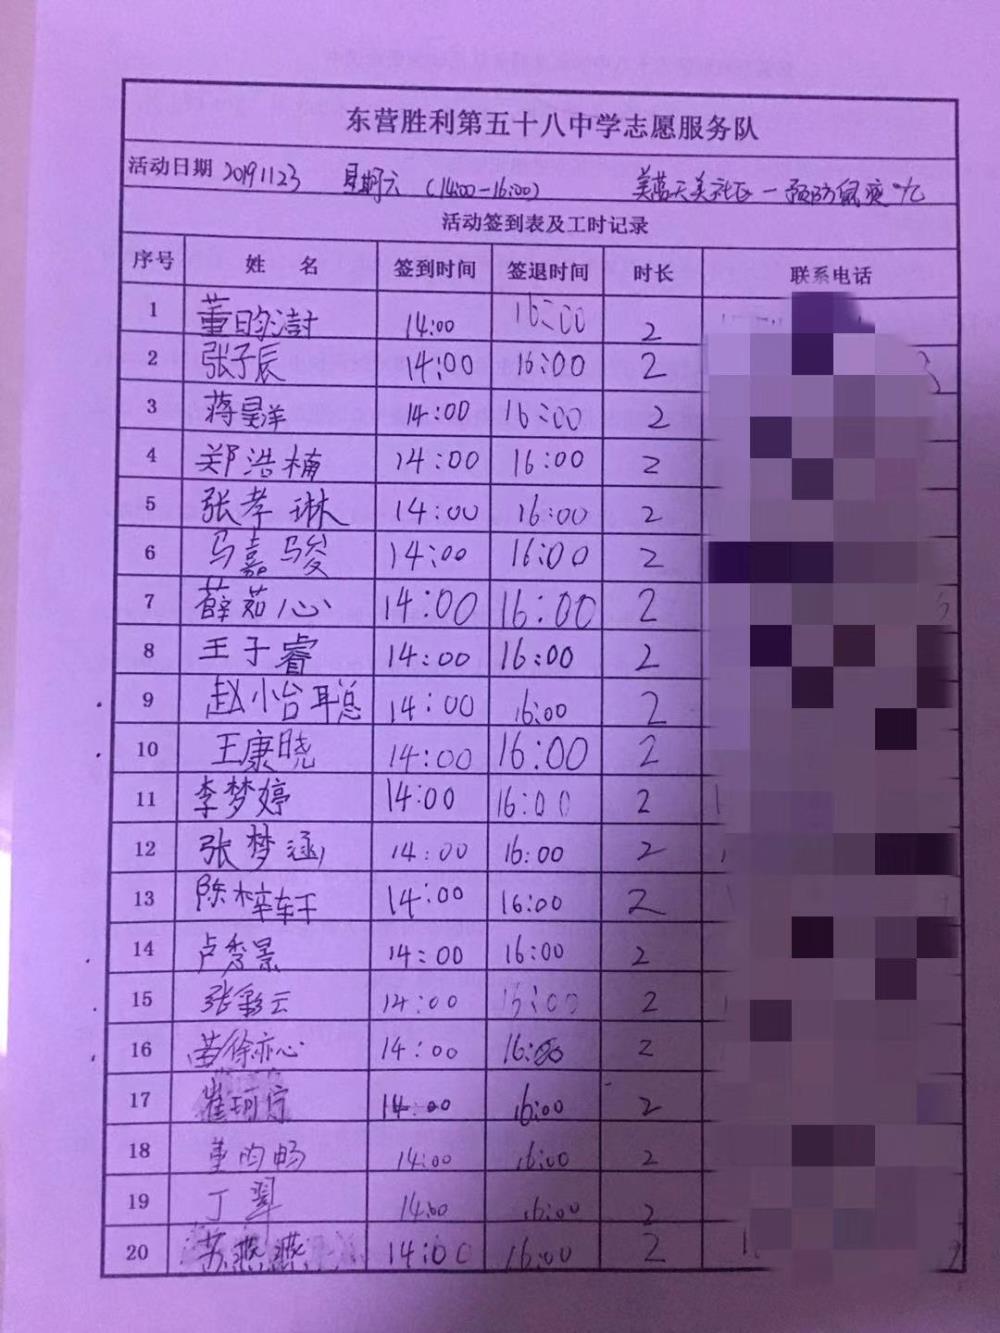 东营胜利第五十八中学志愿服务队
活动日期 20191123 星期六 (14:00-16:00) 美社区一预防鼠疫
活动签到表及工时记录
序号 姓 名 签到时间 签退时间 时长 联系电话
1 董昀澍 14:00 16:00 2
2 张子辰 14:00 16:00 2
3 蒋昊洋 14:00 16:00 2
4 郑浩楠 14:00 16:00 2
5 张孝琳 14:00 16:00 2
6 马嘉骏 14:00 16:00 2
7 薛茹心 14:00 16:00 2
8 王子睿 14:00 16:00 2
9 赵小怡聪 14:00 16:00 2
10 王康晓 14:00 16:00 2
11 李梦婷 14:00 16:00 2
12 张梦涵 14:00 16:00 2
13 陈梓轩 14:00 16:00 2
14 卢秀景 14:00 16:00 2
15 张彩云 14:00 16:00 2
16 苗徐亦心 14:00 16:00 2
17 崔珂 14:00 16:00 2
18 董昀畅 14:00 16:00 2
19 丁翠 14:00 16:00 2
20 苏燕燕 14:00 16:00 2